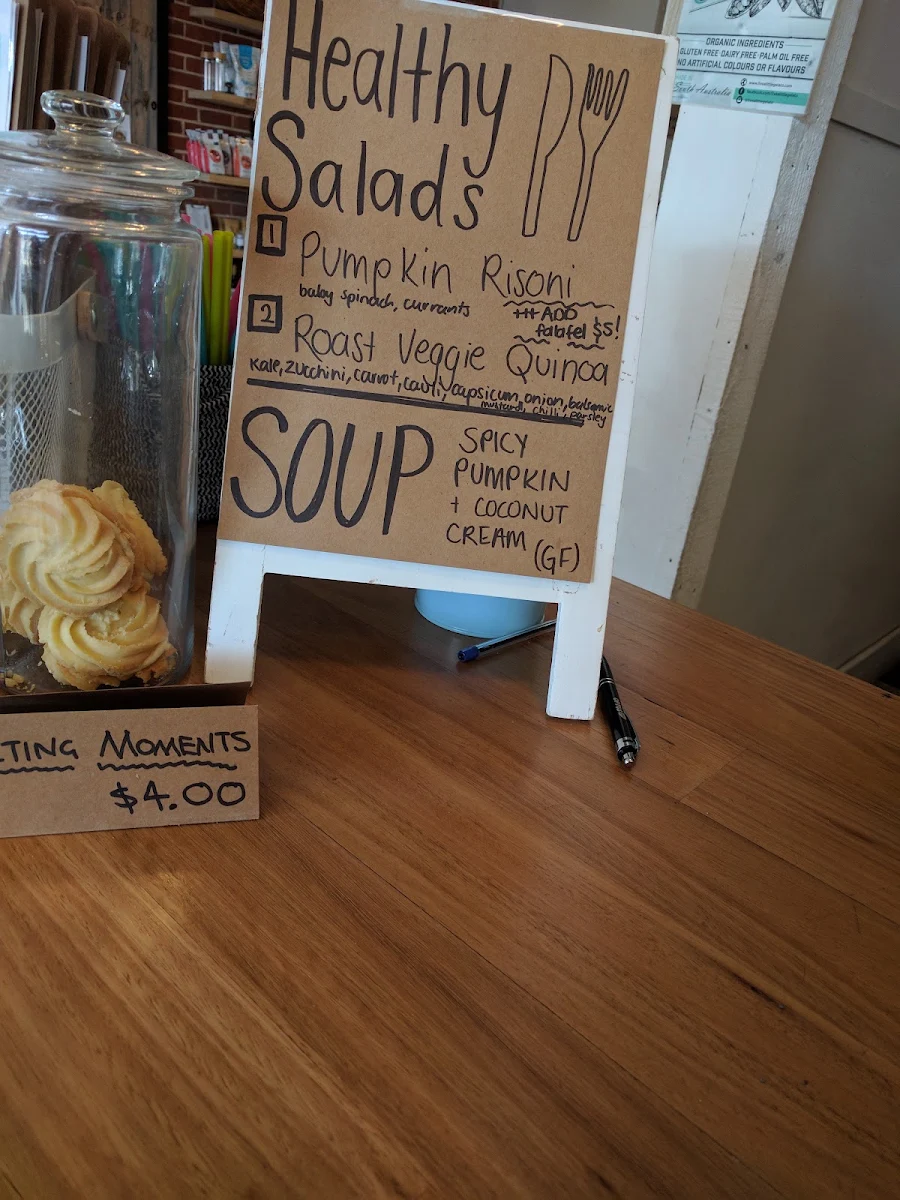 Healthy
Salads
1 Pumpkin Risoni
baby spinach, currants
+++ ADD
falafel $5!
2 Roast Veggie Quinoa
Kale, zucchini, carrot, cauli, capsicum, onion, balsamic
mustard, chilli, parsley
SOUP
SPICY
PUMPKIN
+ COCONUT
CREAM (GF)
LTING MOMENTS
$4.00
ORGANIC INGREDIENTS
GLUTEN FREE·DAIRY FREE·PALM OIL FREE
NO ARTIFICIAL COLOURS OR FLAVOURS
South Australia